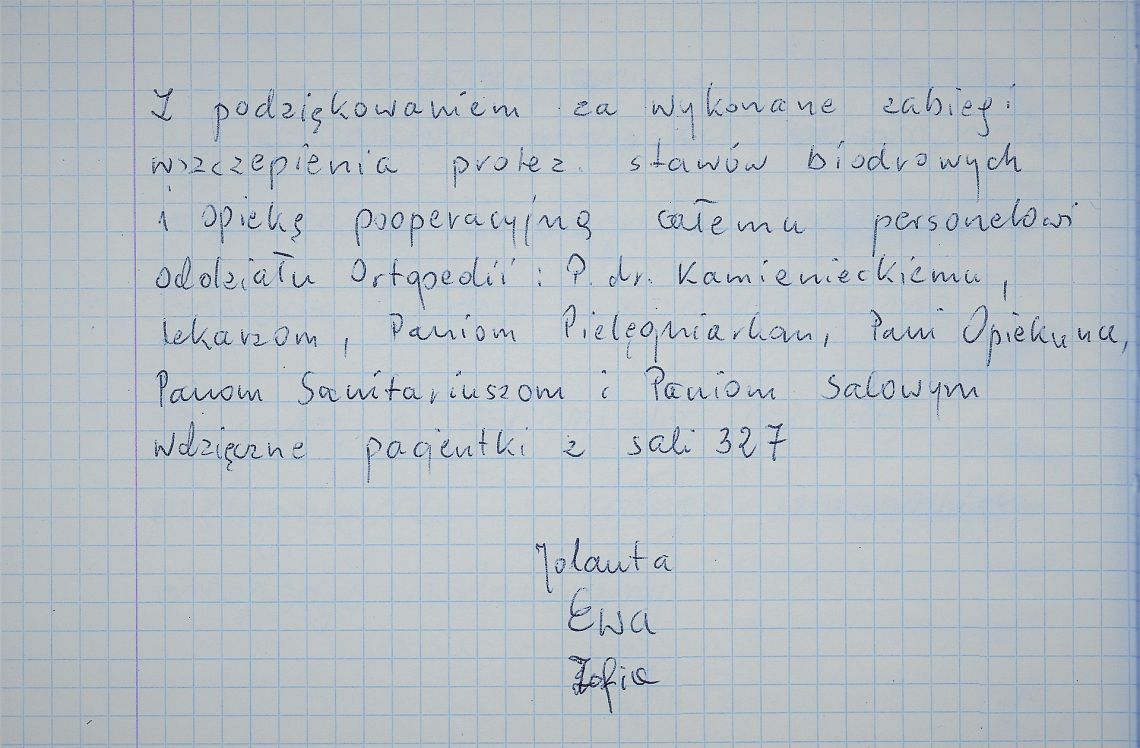 Z podziękowaniem za wykonane zabiegi
wszczepienia protez stawów biodrowych
i opiekę pooperacyjną całemu personelowi
oddziału Ortopedii : P. dr. Kamienieckiemu,
lekarzom, Paniom Pielęgniarkom, Pani Opiekunce,
Panom Sanitariuszom i Paniom Salowym
wdzięczne pacjentki z sali 327
Jolanta
Ewa
Zofia